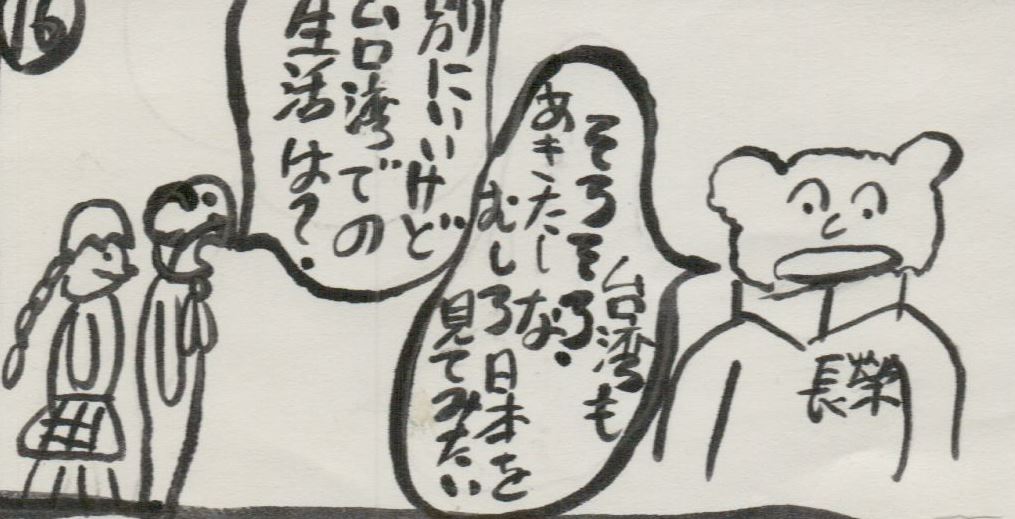 台湾も
そろそろ
あきたしな。
むしろ日本を
見てみたい
別にいいけど
台湾での
生活は?
長榮
16